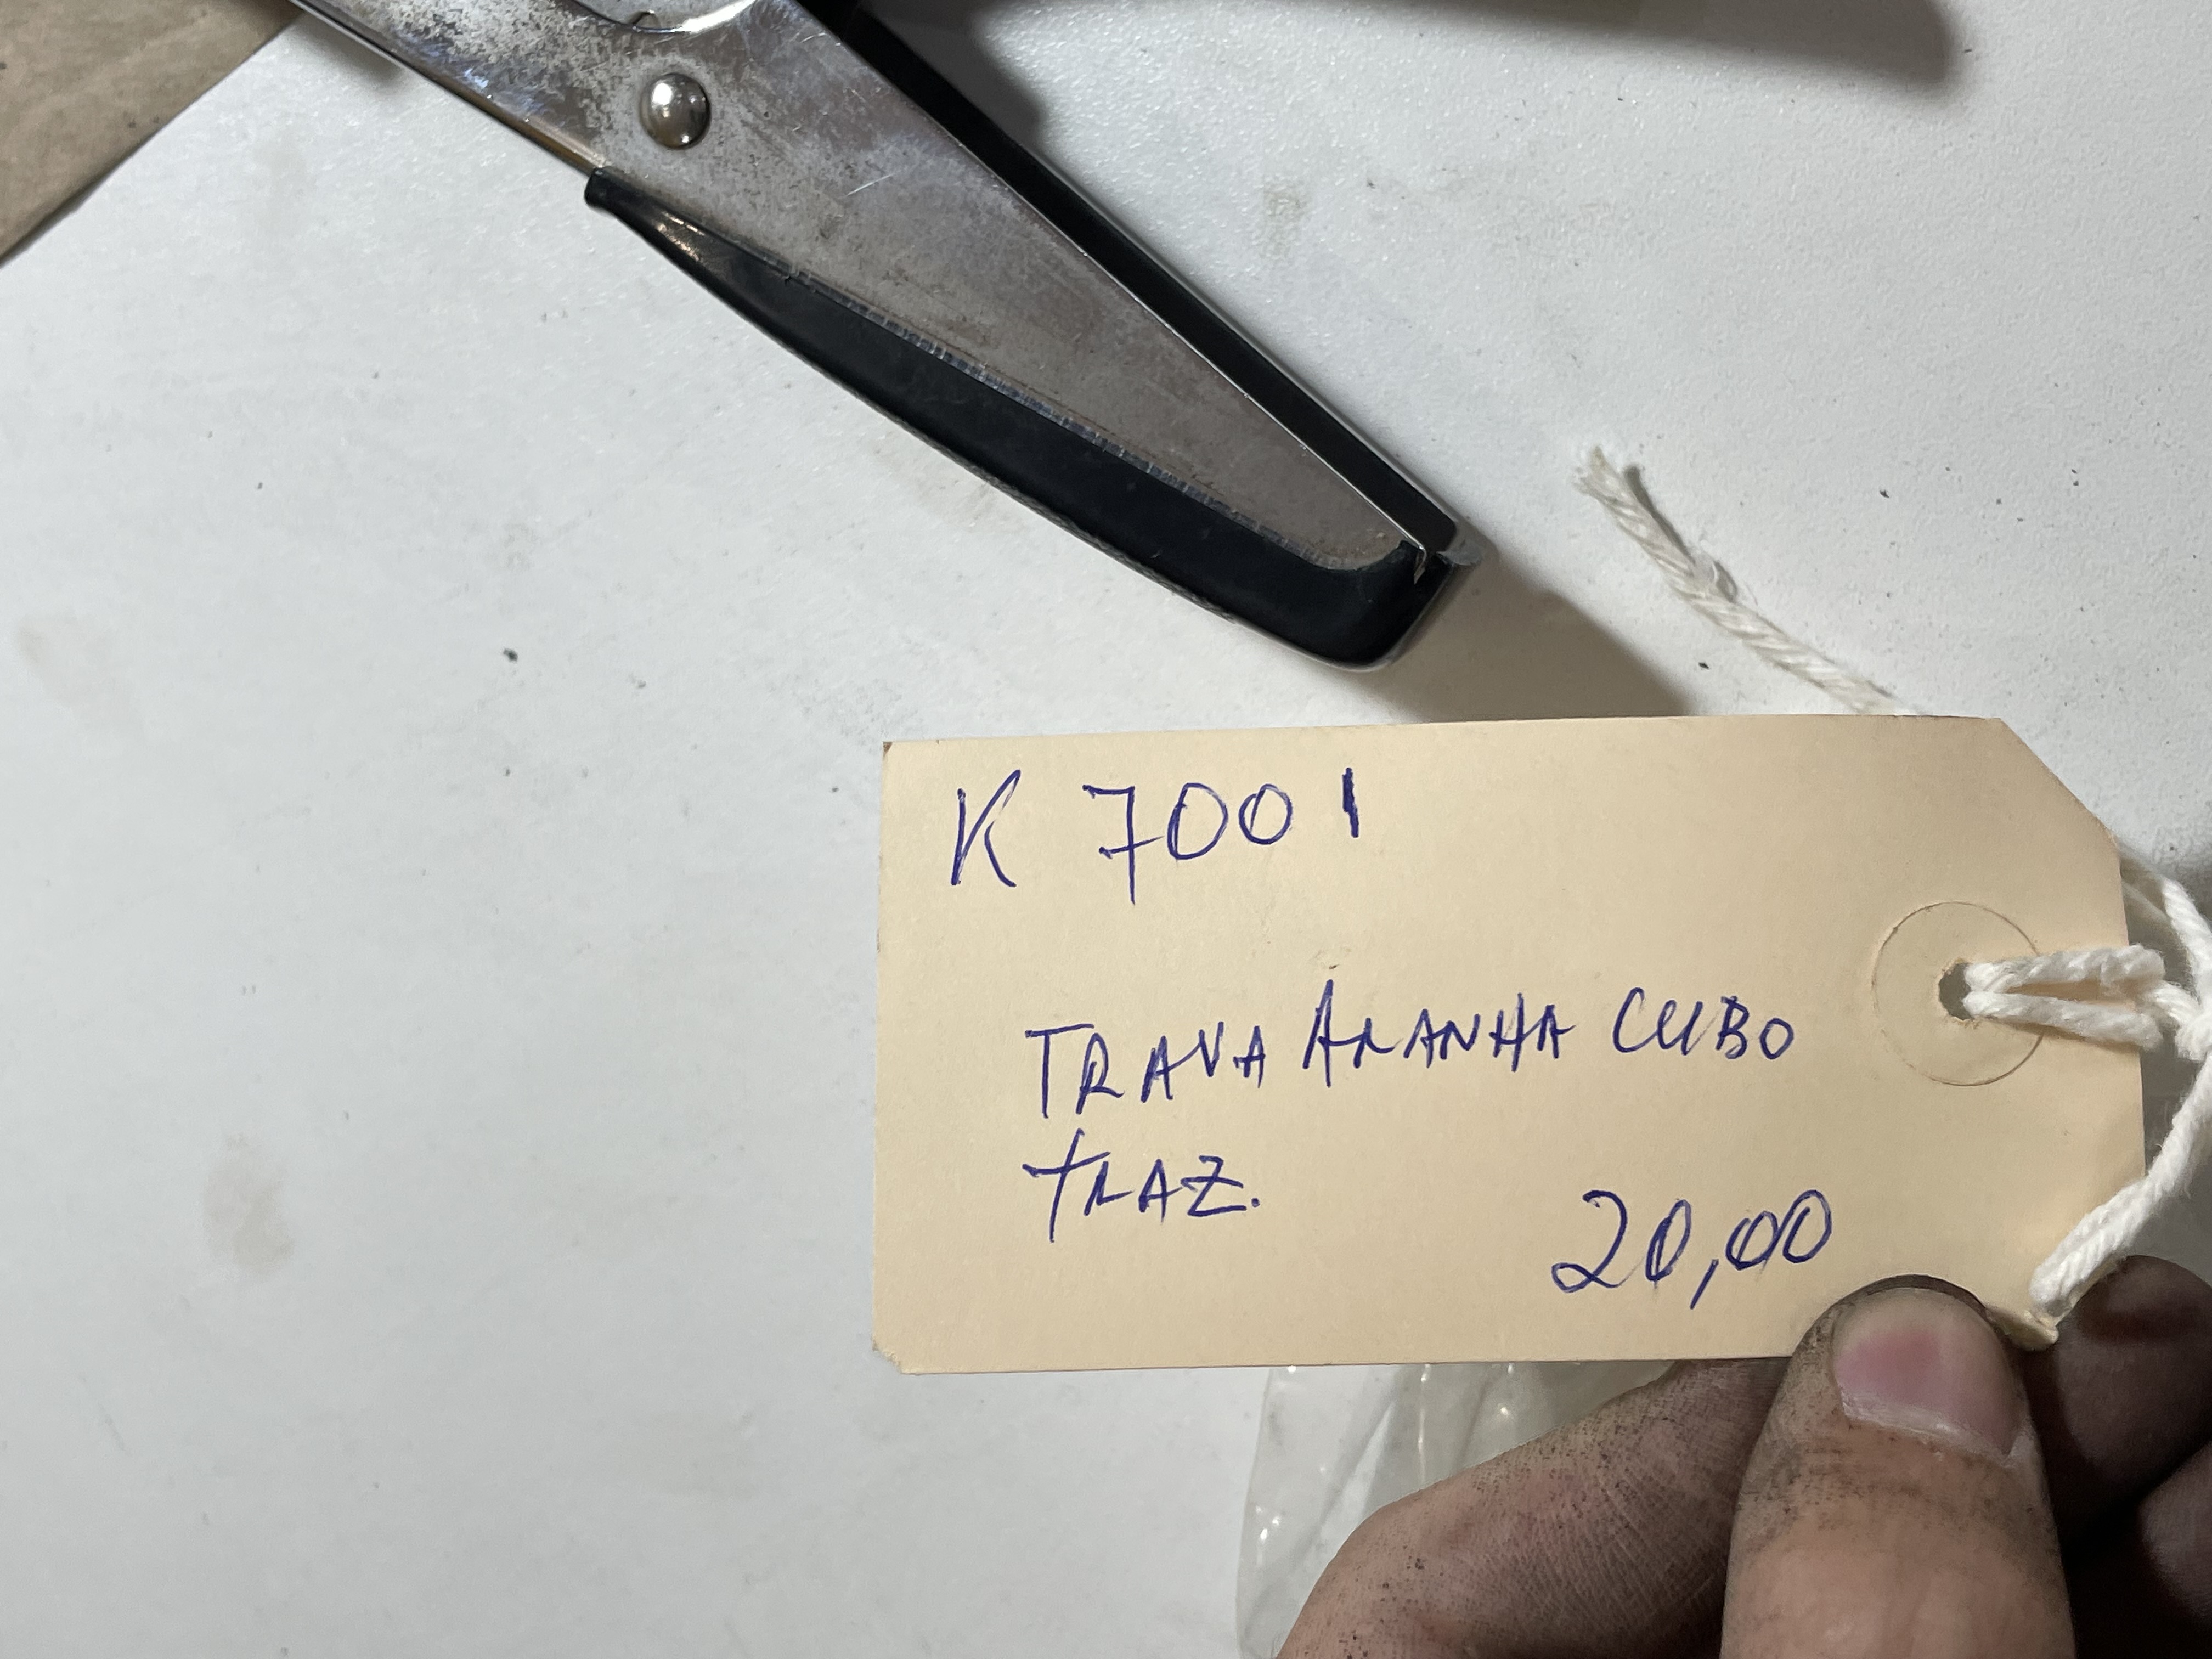 K 7001
TRAVA ARANHA CUBO
TRAZ.
20,00